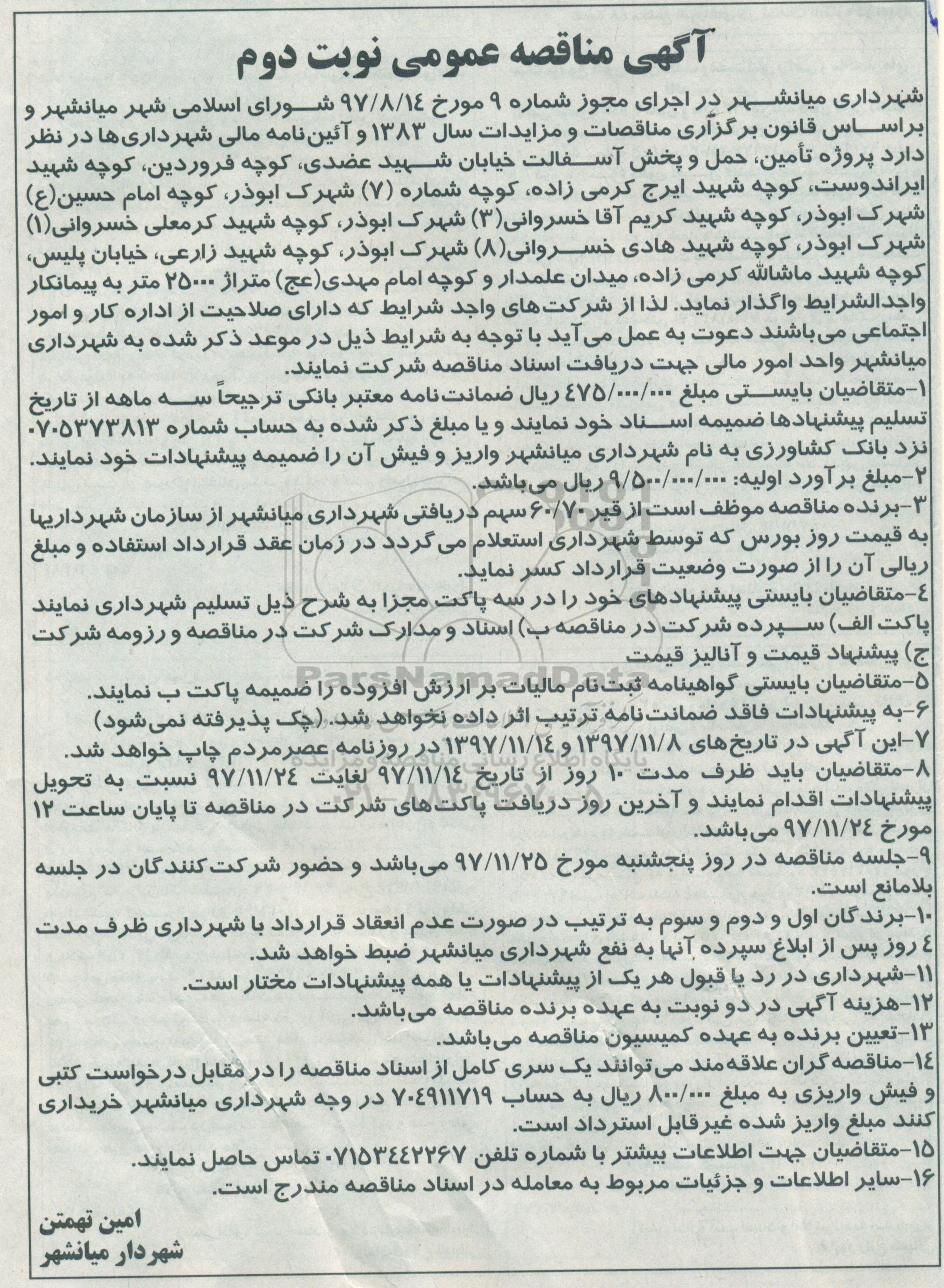 آگهی مناقصه عمومی نوبت دوم
شهرداری میانشهر در اجرای مجوز شماره ۹ مورخ ۹۷/۸/۱٤ شورای اسلامی شهر میانشهر و
براساس قانون برگزاری مناقصات و مزایدات سال ۱۳۸۳ و آئین‌نامه مالی شهرداری‌ها در نظر
دارد پروژه تأمین، حمل و پخش آسفالت خیابان شهید عضدی، کوچه فروردین، کوچه شهید
ایراندوست، کوچه شهید ایرج کرمی زاده، کوچه شماره (۷) شهرک ابوذر، کوچه امام حسین(ع)
شهرک ابوذر، کوچه شهید کریم آقا خسروانی(۳) شهرک ابوذر، کوچه شهید کرمعلی خسروانی(۱)
شهرک ابوذر، کوچه شهید هادی خسروانی(۸) شهرک ابوذر، کوچه شهید زارعی، خیابان پلیس،
کوچه شهید ماشالله کرمی زاده، میدان علمدار و کوچه امام مهدی(عج) متراژ ۲۵۰۰۰ متر به پیمانکار
واجدالشرایط واگذار نماید. لذا از شرکت‌های واجد شرایط که دارای صلاحیت از اداره کار و امور
اجتماعی می‌باشند دعوت به عمل می‌آید با توجه به شرایط ذیل در موعد ذکر شده به شهرداری
میانشهر واحد امور مالی جهت دریافت اسناد مناقصه شرکت نمایند.
۱-متقاضیان بایستی مبلغ ٤۷۵/۰۰۰/۰۰۰ ریال ضمانت‌نامه معتبر بانکی ترجیحاً سه ماهه از تاریخ
تسلیم پیشنهادها ضمیمه اسناد خود نمایند و یا مبلغ ذکر شده به حساب شماره ۰۷۰۵۳۷۳۸۱۳
نزد بانک کشاورزی به نام شهرداری میانشهر واریز و فیش آن را ضمیمه پیشنهادات خود نمایند.
۲-مبلغ برآورد اولیه: ۹/۵۰۰/۰۰۰/۰۰۰ ریال می‌باشد.
۳-برنده مناقصه موظف است از قیر ۶۰/۷۰ سهم دریافتی شهرداری میانشهر از سازمان شهرداریها
به قیمت روز بورس که توسط شهرداری استعلام می‌گردد در زمان عقد قرارداد استفاده و مبلغ
ریالی آن را از صورت وضعیت قرارداد کسر نماید.
٤-متقاضیان بایستی پیشنهادهای خود را در سه پاکت مجزا به شرح ذیل تسلیم شهرداری نمایند
پاکت الف) سپرده شرکت در مناقصه ب) اسناد و مدارک شرکت در مناقصه و رزومه شرکت
ج) پیشنهاد قیمت و آنالیز قیمت
ParsNamadData
۵-متقاضیان بایستی گواهینامه ثبت‌نام مالیات بر ارزش افزوده را ضمیمه پاکت ب نمایند.
۶-به پیشنهادات فاقد ضمانت‌نامه ترتیب اثر داده نخواهد شد. (چک پذیرفته نمی‌شود)
۷-این آگهی در تاریخ‌های ۱۳۹۷/۱۱/۸ و ۱۳۹۷/۱۱/۱٤ در روزنامه عصرمردم چاپ خواهد شد.
پایگاه اطلاع رسانی مناقصه و مزایده
۸-متقاضیان باید ظرف مدت ۱۰ روز از تاریخ ۹۷/۱۱/۱٤ لغایت ۹۷/۱۱/۲٤ نسبت به تحویل
پیشنهادات اقدام نمایند و آخرین روز دریافت پاکت‌های شرکت در مناقصه تا پایان ساعت ۱۲
مورخ ۹۷/۱۱/۲٤ می‌باشد.
۹-جلسه مناقصه در روز پنجشنبه مورخ ۹۷/۱۱/۲۵ می‌باشد و حضور شرکت‌کنندگان در جلسه
بلامانع است.
۱۰-برندگان اول و دوم و سوم به ترتیب در صورت عدم انعقاد قرارداد با شهرداری ظرف مدت
٤ روز پس از ابلاغ سپرده آنها به نفع شهرداری میانشهر ضبط خواهد شد.
۱۱-شهرداری در رد یا قبول هر یک از پیشنهادات یا همه پیشنهادات مختار است.
۱۲-هزینه آگهی در دو نوبت به عهده برنده مناقصه می‌باشد.
۱۳-تعیین برنده به عهده کمیسیون مناقصه می‌باشد.
۱٤-مناقصه‌گران علاقه‌مند می‌توانند یک سری کامل از اسناد مناقصه را در مقابل درخواست کتبی
و فیش واریزی به مبلغ ۸۰۰/۰۰۰ ریال به حساب ۷۰٤۹۱۱۷۱۹ در وجه شهرداری میانشهر خریداری
کنند مبلغ واریز شده غیرقابل استرداد است.
۱۵-متقاضیان جهت اطلاعات بیشتر با شماره تلفن ۰۷۱۵۳٤٤۲۲۶۷ تماس حاصل نمایند.
۱۶-سایر اطلاعات و جزئیات مربوط به معامله در اسناد مناقصه مندرج است.
امین تهمتن
شهردار میانشهر